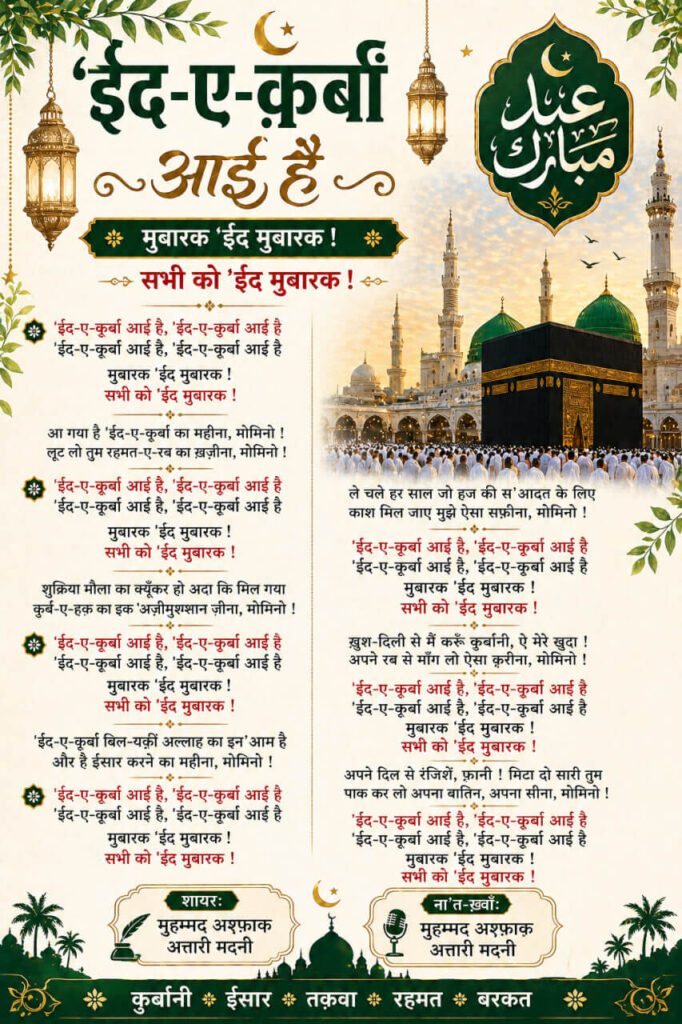 'ईद-ए-क़ुर्बां
आई है
عيد
مبارك
मुबारक 'ईद मुबारक !
सभी को 'ईद मुबारक !
'ईद-ए-कूर्बा आई है, 'ईद-ए-कुर्बा आई है
'ईद-ए-कूर्बा आई है, 'ईद-ए-कूर्बा आई है
मुबारक 'ईद मुबारक !
सभी को 'ईद मुबारक !
आ गया है 'ईद-ए-कूर्बा का महीना, मोमिनो !
लूट लो तुम रहमत-ए-रब का ख़ज़ीना, मोमिनो !
'ईद-ए-कूर्बा आई है, 'ईद-ए-कूर्बा आई है
'ईद-ए-कूर्बा आई है, 'ईद-ए-कूर्बा आई है
मुबारक 'ईद मुबारक !
सभी को 'ईद मुबारक !
शुक्रिया मौला का क्यूँकर हो अदा कि मिल गया
कुर्ब-ए-हक़ का इक 'अज़ीमुश्शान ज़ीना, मोमिनो !
'ईद-ए-कूर्बा आई है, 'ईद-ए-कुर्बा आई है
'ईद-ए-कूर्बा आई है, 'ईद-ए-कूर्बा आई है
मुबारक 'ईद मुबारक !
सभी को 'ईद मुबारक !
'ईद-ए-कूर्बा बिल-यक़ीं अल्लाह का इन'आम है
और है ईसार करने का महीना, मोमिनो !
'ईद-ए-कूर्बा आई है, 'ईद-ए-कूर्बा आई है
'ईद-ए-कूर्बा आई है, 'ईद-ए-कूर्बा आई है
मुबारक 'ईद मुबारक !
सभी को 'ईद मुबारक !
ले चले हर साल जो हज की स'आदत के लिए
काश मिल जाए मुझे ऐसा सफ़ीना, मोमिनो !
'ईद-ए-कूर्बा आई है, 'ईद-ए-कूर्बा आई है
'ईद-ए-कूर्बा आई है, 'ईद-ए-कूर्बा आई है
मुबारक 'ईद मुबारक !
सभी को 'ईद मुबारक !
ख़ुश-दिली से मैं करूँ कुर्बानी, ऐ मेरे खुदा !
अपने रब से माँग लो ऐसा क़रीना, मोमिनो !
'ईद-ए-कूर्बा आई है, 'ईद-ए-कूर्बा आई है
'ईद-ए-कूर्बा आई है, 'ईद-ए-कूर्बा आई है
मुबारक 'ईद मुबारक !
सभी को 'ईद मुबारक !
अपने दिल से रंजिशें, फ़ानी ! मिटा दो सारी तुम
पाक कर लो अपना बातिन, अपना सीना, मोमिनो !
'ईद-ए-कूर्बा आई है, 'ईद-ए-कूर्बा आई है
'ईद-ए-कूर्बा आई है, 'ईद-ए-कूर्बा आई है
मुबारक 'ईद मुबारक !
सभी को 'ईद मुबारक !
शायरः
मुहम्मद अश्फ़ाक
अत्तारी मदनी
ना'त-ख़्वाँ:
मुहम्मद अश्फ़ाक़
अत्तारी मदनी
कुर्बानी ईसार तक़वा रहमत बरकत